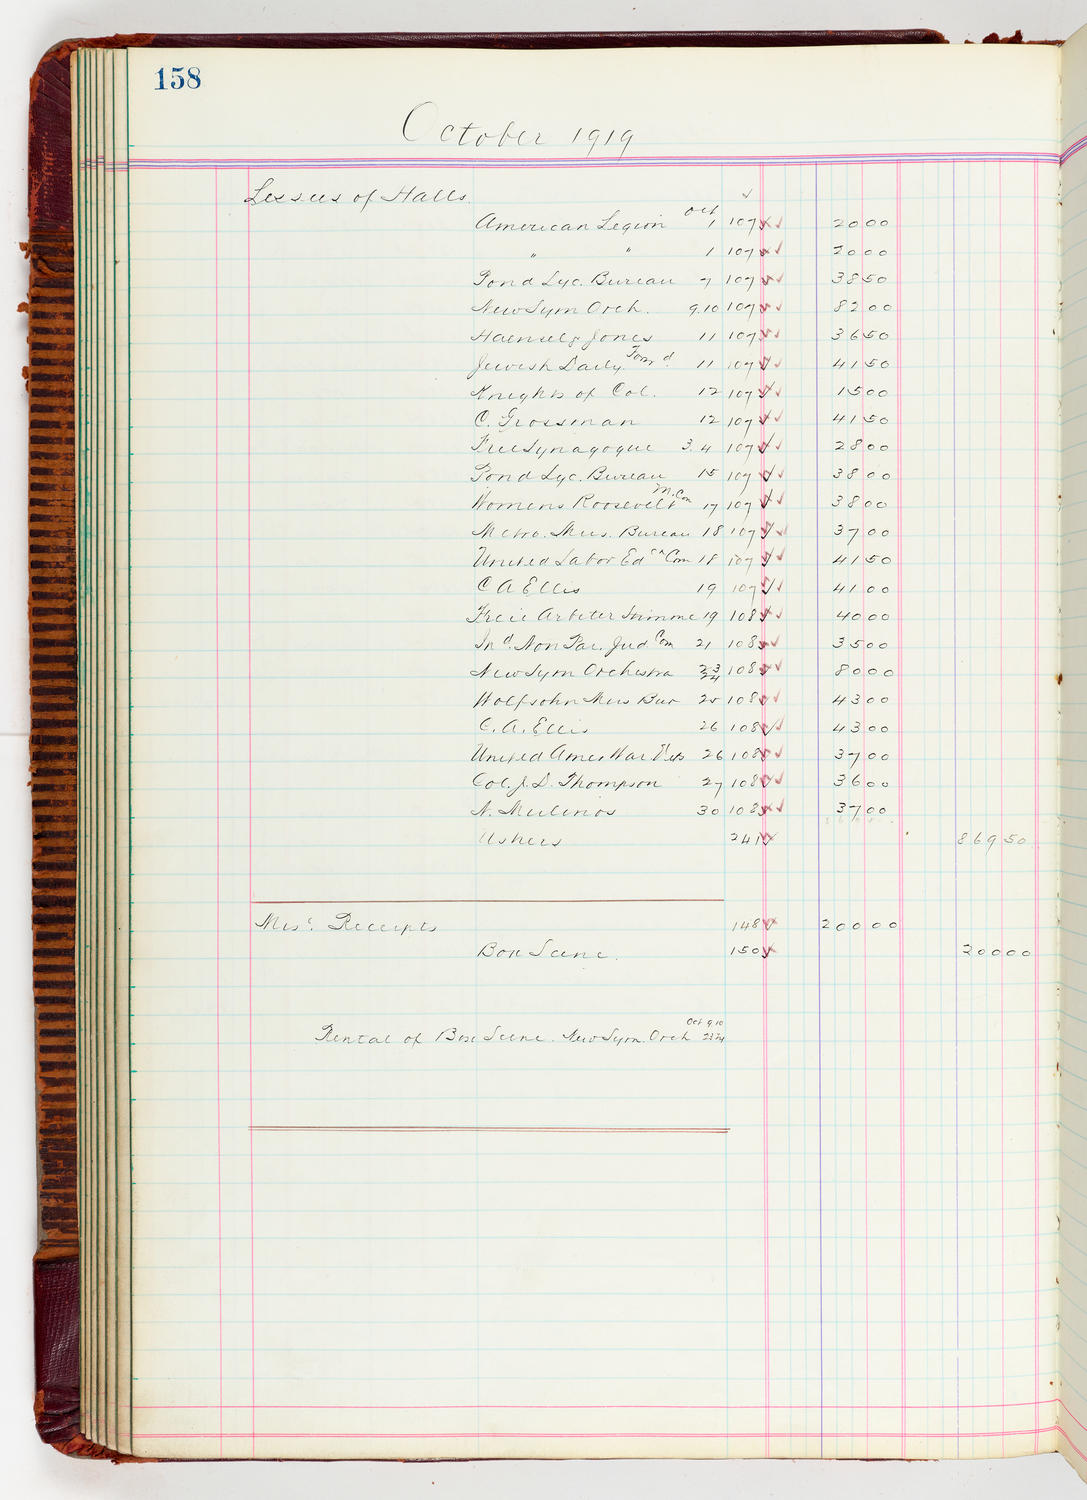 158
October 1919
Lessees of Halls
American Legion Oct 1 107 20 00
" " 1 107 20 00
Pond Lyc. Bureau 7 107 38 50
New Sym Orch. 9.10 107 82 00
Haensel & Jones 11 107 36 50
Jewish Daily Forw'd. 11 107 41 50
Knights of Col. 12 107 15 00
C. Grossman 12 107 41 50
Free Synagogue 3.4 107 28 00
Pond Lyc. Bureau 15 107 38 00
Womens Roosevelt M. Com 17 107 38 00
Metro. Mus. Bureau 18 107 37 00
United Labor Edcn Com 18 107 41 50
C A Ellis 19 107 41 00
Freie Arbeiter Stimme 19 108 40 00
Ind. Non Par. Jud Com 21 108 35 00
New Sym Orchestra 23 24 108 80 00
Wolfsohn Mus Bur 25 108 43 00
C. A. Ellis 26 108 43 00
United Amer War Vets 26 108 37 00
Col. J. D. Thompson 27 108 36 00
N. Mulinos 30 108 37 00
Ushers 241 869 50
Misc. Receipts 148 200 00
Box Scene. 150 200 00
Rental of Box Scene. New Sym. Orch Oct 9.10 23 24